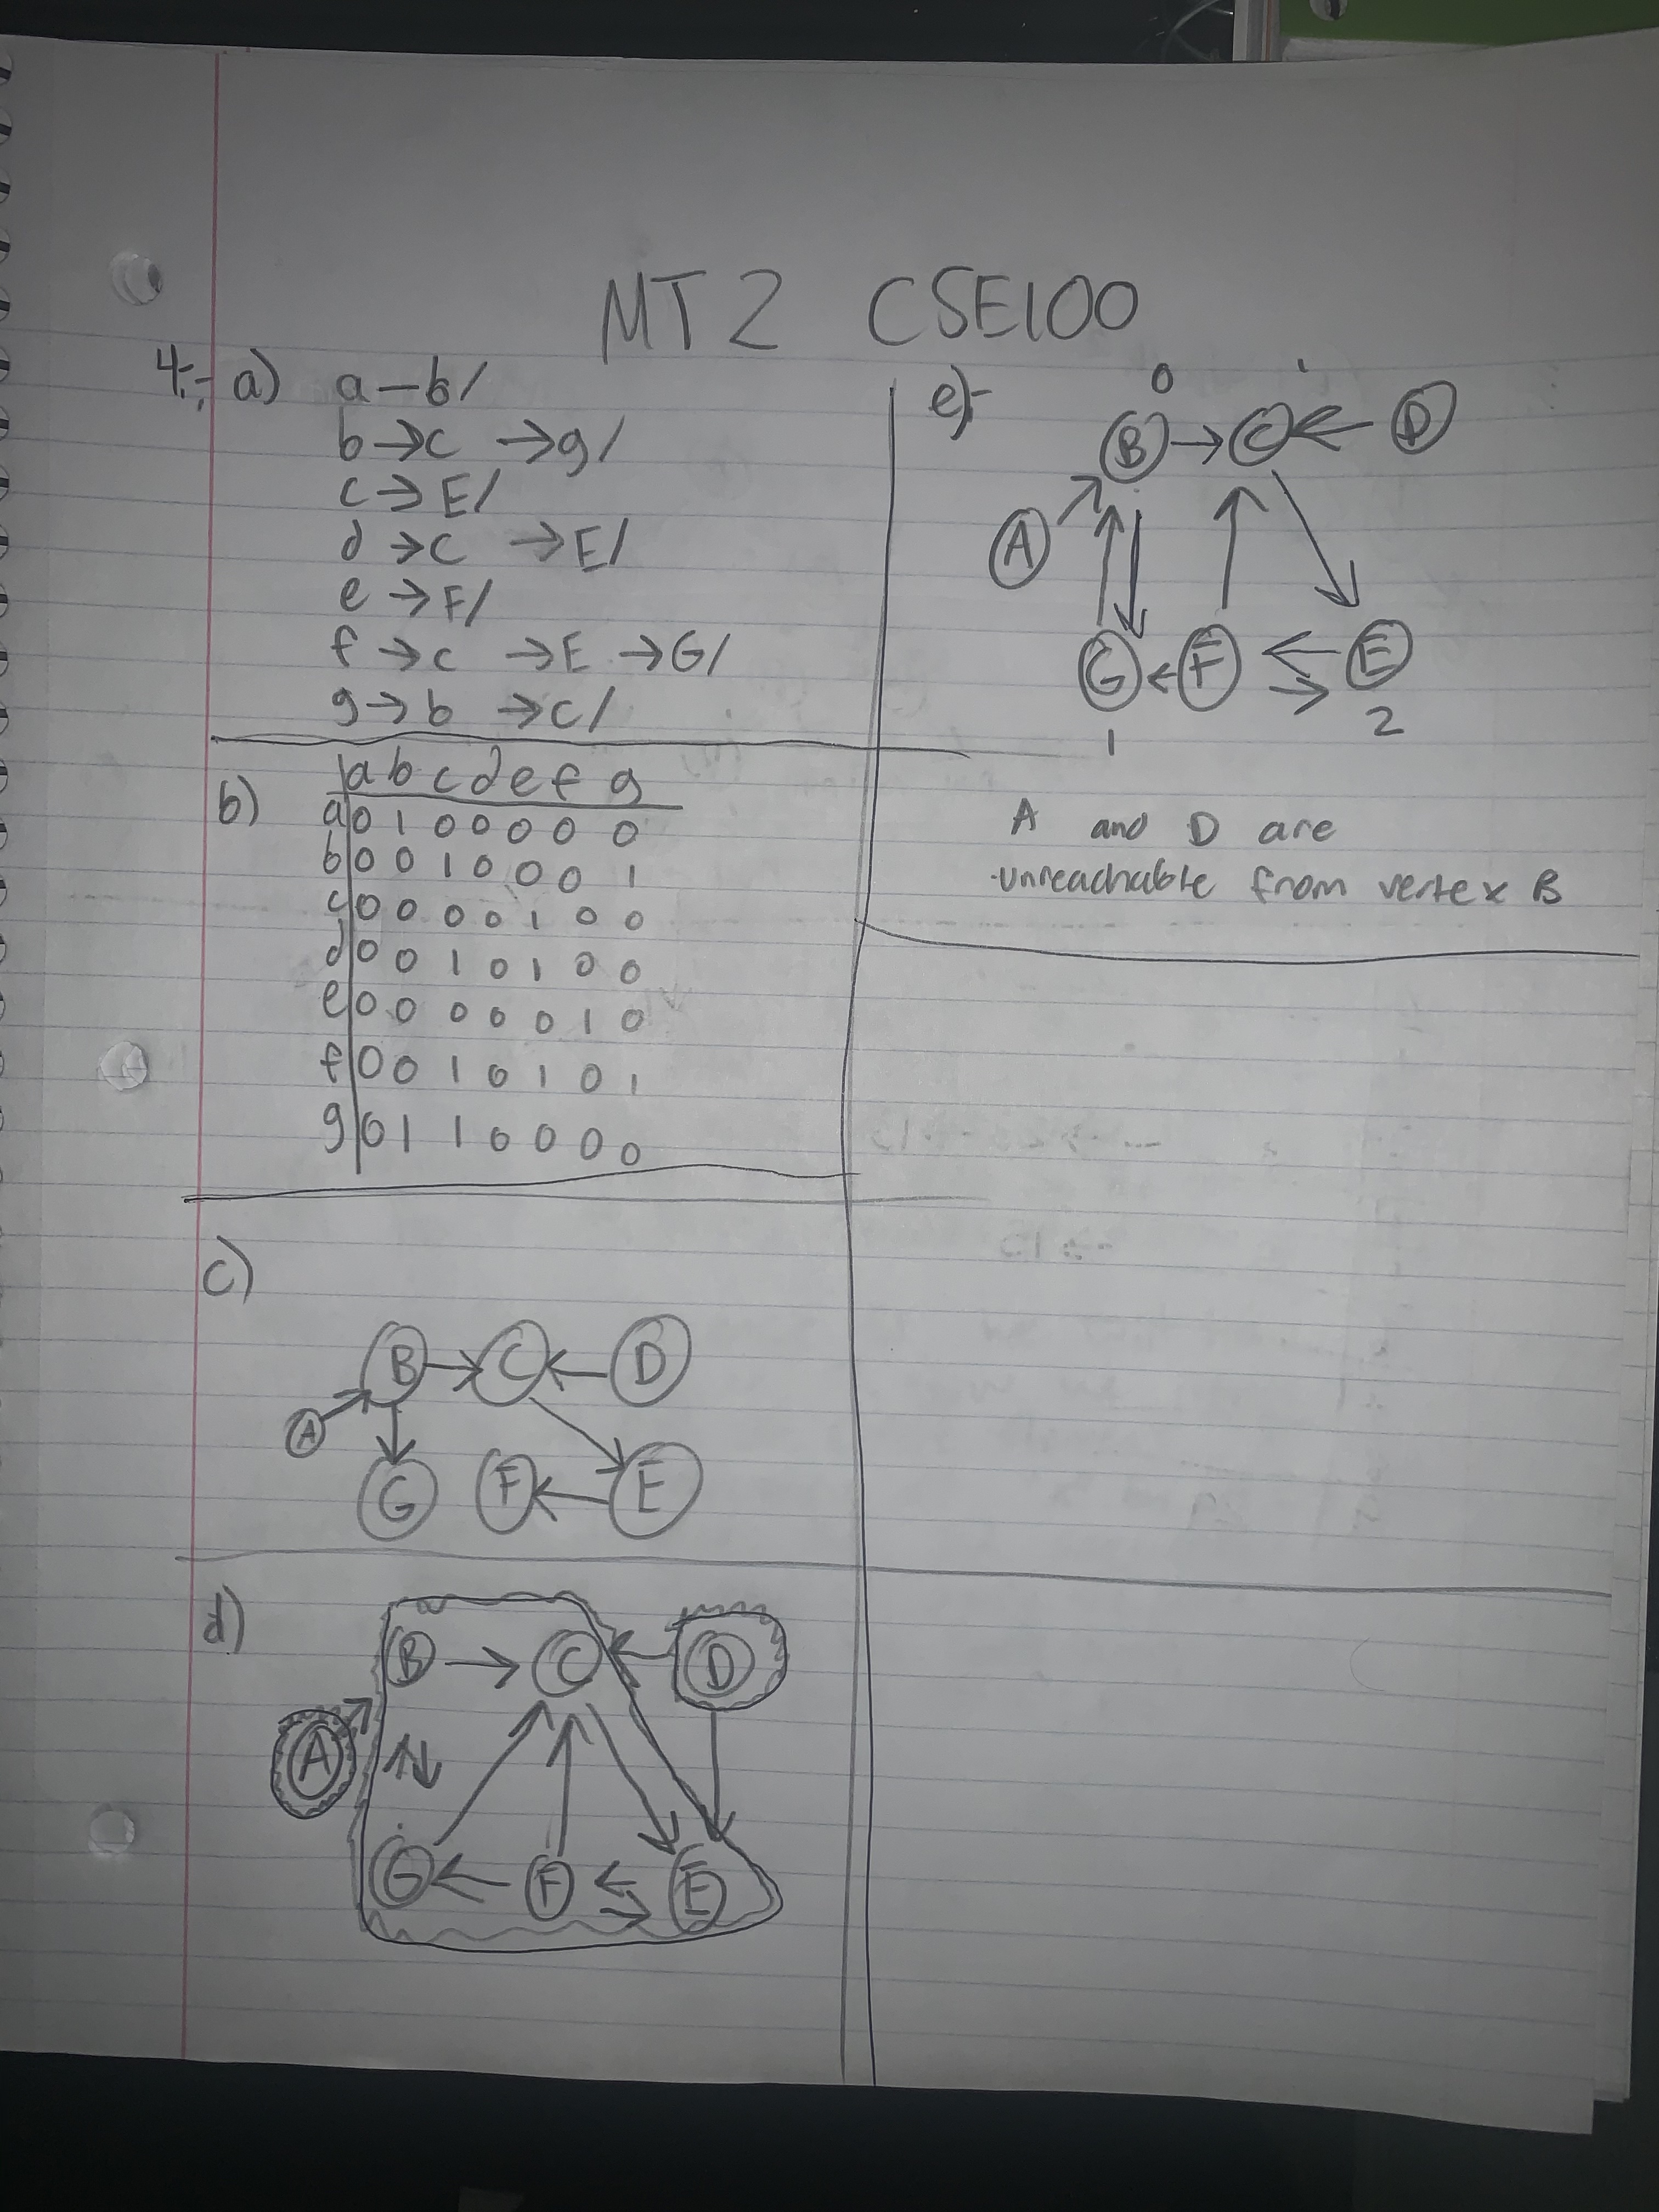 MT 2 CSE100
4:- a) a — b/
b → c → g/
c → E/
d → c → E/
e → F/
f → c → E → G/
g → b → c/
b)
a b c d e f g
a 0 1 0 0 0 0 0
b 0 0 1 0 0 0 1
c 0 0 0 0 1 0 0
d 0 0 1 0 1 0 0
e 0 0 0 0 0 1 0
f 0 0 1 0 1 0 1
g 0 1 1 0 0 0 0
c)
B → C ← D
A
G F ← E
d)
B → C ← D
A
G ← F E
e)-
0
B → C ← D
A
G ← F E
1 2
A and D are
unreachable from vertex B